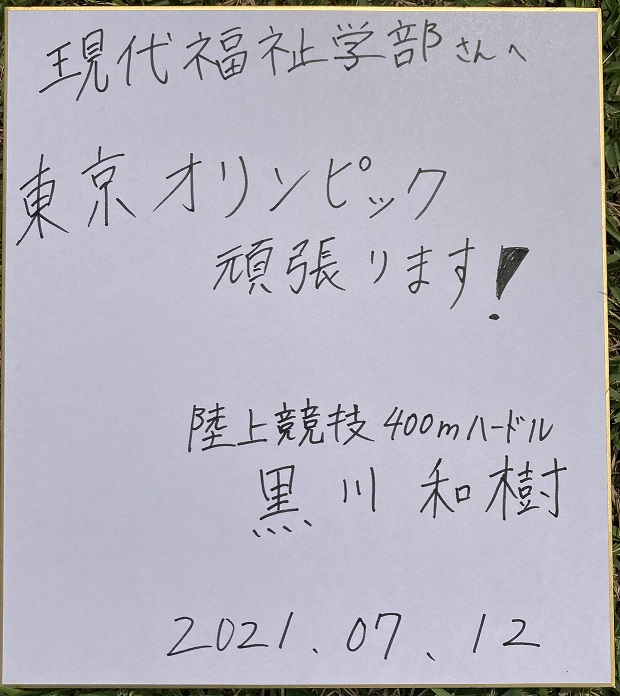 現代福祉学部さんへ
東京オリンピック
頑張ります!
陸上競技 400mハードル
黒川 和樹
2021.07.12